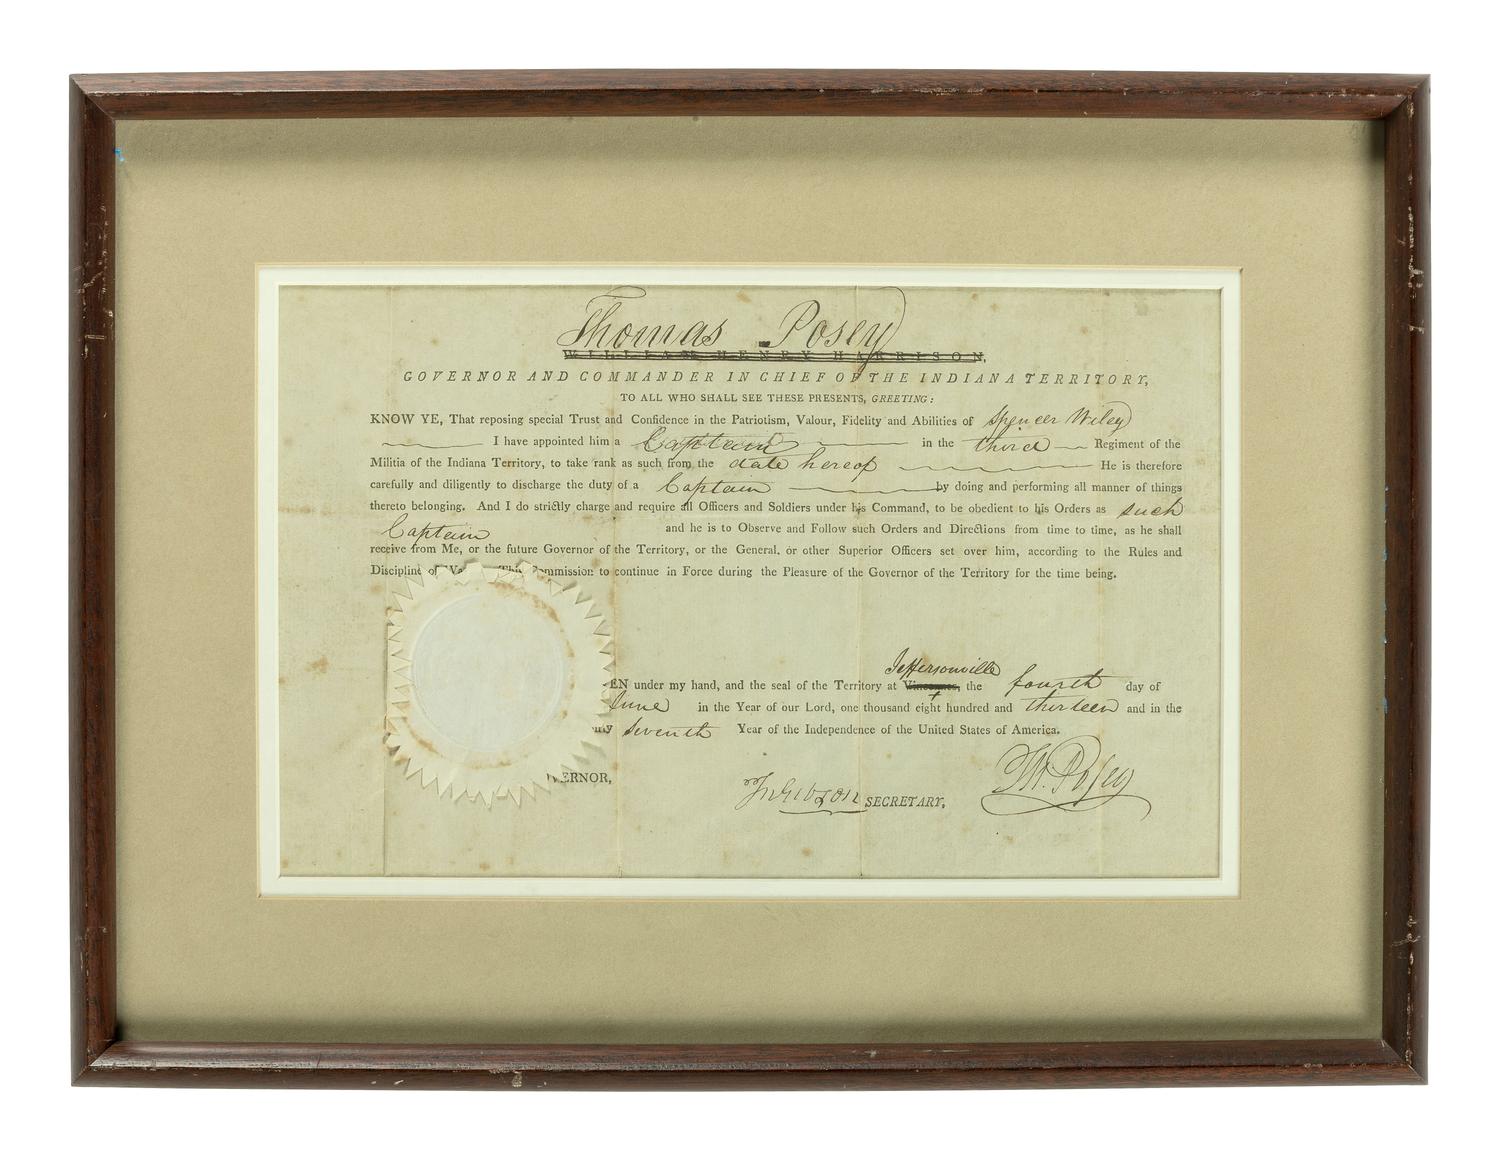 Thomas Posey
WILLIAM HENRY HARRISON,
GOVERNOR AND COMMANDER IN CHIEF OF THE INDIANA TERRITORY,
TO ALL WHO SHALL SEE THESE PRESENTS, GREETING:
KNOW YE, That reposing special Trust and Confidence in the Patriotism, Valour, Fidelity and Abilities of Spencer Wiley
I have appointed him a Captain in the third Regiment of the
Militia of the Indiana Territory, to take rank as such from the date hereof He is therefore
carefully and diligently to discharge the duty of a Captain by doing and performing all manner of things
thereto belonging. And I do strictly charge and require all Officers and Soldiers under his Command, to be obedient to his Orders as such
Captain and he is to Observe and Follow such Orders and Directions from time to time, as he shall
receive from Me, or the future Governor of the Territory, or the General, or other Superior Officers set over him, according to the Rules and
Discipline of Wa This Commission to continue in Force during the Pleasure of the Governor of the Territory for the time being.
Jeffersonville
EN under my hand, and the seal of the Territory at Vincennes, the fourth day of
June in the Year of our Lord, one thousand eight hundred and thirteen and in the
seventh Year of the Independence of the United States of America.
VERNOR,
Jn Gibson SECRETARY,
Th. Posey